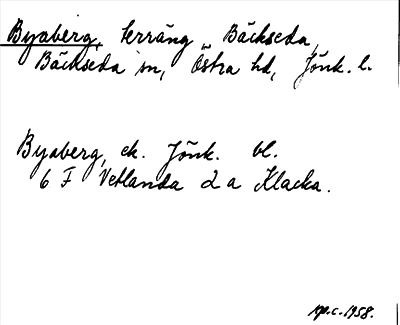 Byaberg, terräng, Bäckseda,
Bäckseda sn, Östra hd, Jönk. l.
Byaberg, ek. Jönk. bl.
6 F Vetlanda 2 a Klacka.
rp.c. 1958.